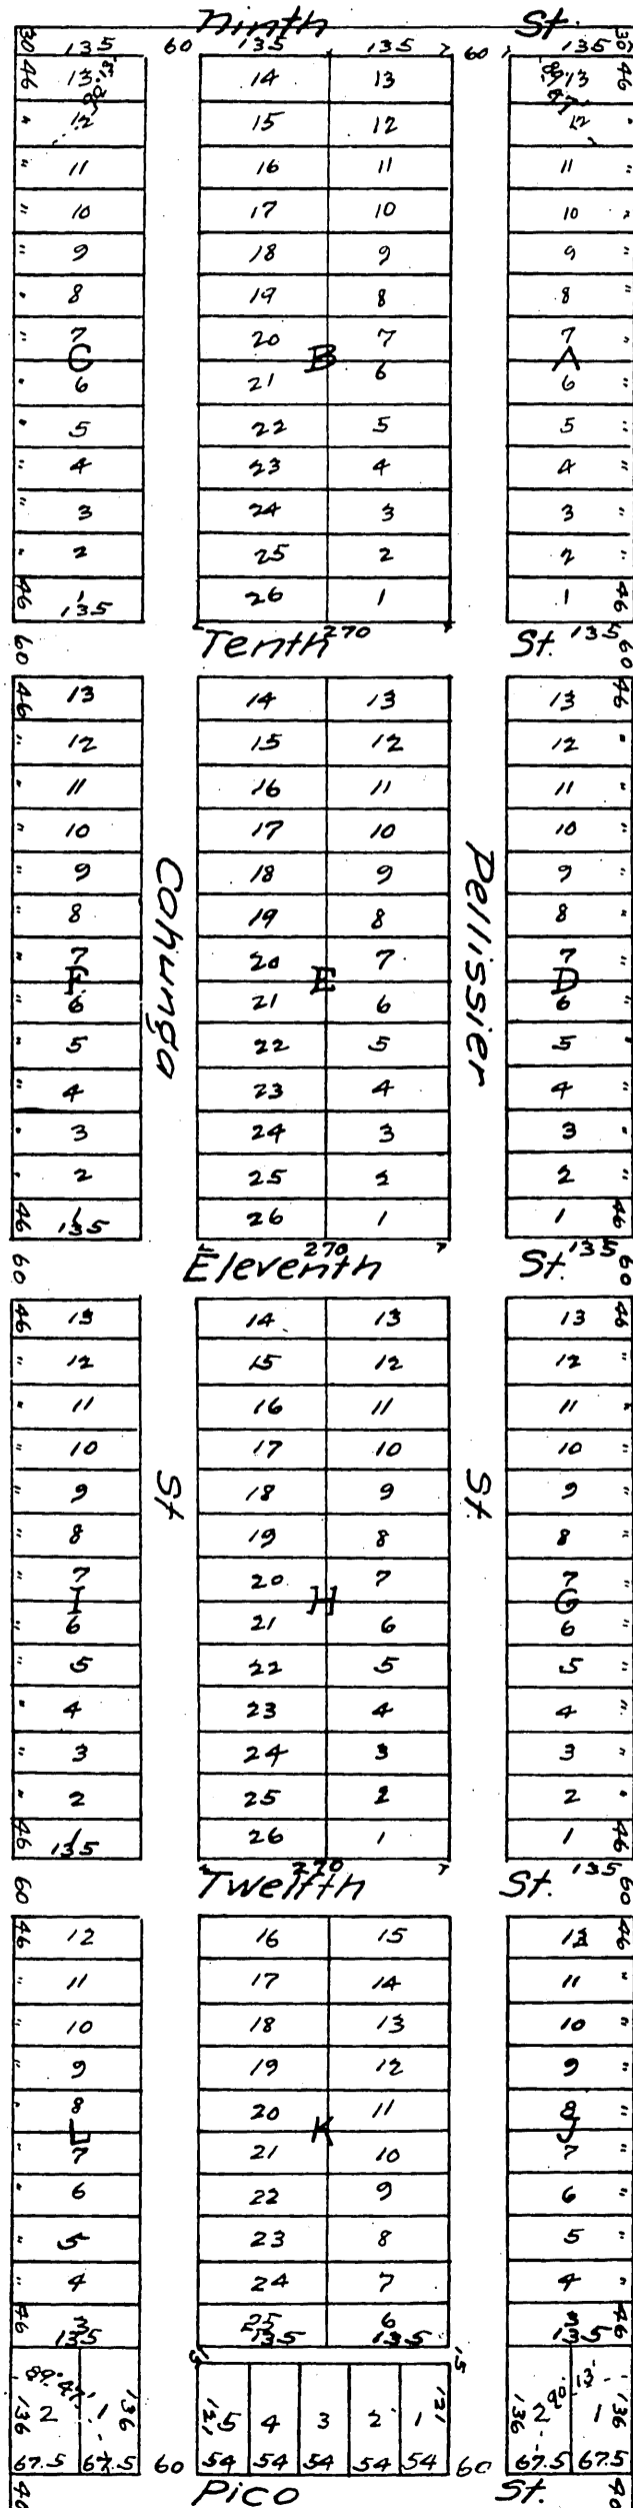 Ninth St.
30 135 60 135 135 60 135 30
46 13 14 13 13 46
" 12 15 12 12 "
" 11 16 11 11 "
" 10 17 10 10 "
" 9 18 9 9 "
" 8 19 8 8 "
" 7 20 7 7 "
C B A
" 6 21 6 6 "
" 5 22 5 5 "
" 4 23 4 4 "
" 3 24 3 3 "
" 2 25 2 2 "
46 1 26 1 1 46
135
60 Tenth 270 St. 135 60
46 13 14 13 13 46
" 12 15 12 12 "
" 11 16 11 11 "
" 10 17 10 10 "
" 9 18 9 9 "
" 8 19 8 8 "
" 7 20 7 7 "
F E D
" 6 21 6 6 "
" 5 22 5 5 "
" 4 23 4 4 "
" 3 24 3 3 "
" 2 25 2 2 "
46 1 26 1 1 46
135
Cahunga
Pellissier
60 Eleventh 270 St. 135 60
46 13 14 13 13 46
" 12 15 12 12 "
" 11 16 11 11 "
" 10 17 10 10 "
" 9 18 9 9 "
" 8 19 8 8 "
" 7 20 7 7 "
I H G
" 6 21 6 6 "
" 5 22 5 5 "
" 4 23 4 4 "
" 3 24 3 3 "
" 2 25 2 2 "
46 1 26 1 1 46
135
St
St.
60 Twelfth 270 St. 135 60
46 12 16 15 12 46
" 11 17 14 11 "
" 10 18 13 10 "
" 9 19 12 9 "
" 8 20 11 8 "
L K J
" 7 21 10 7 "
" 6 22 9 6 "
" 5 23 8 5 "
" 4 24 7 4 "
46 3 25 6 3 46
135 135 135 135
15 15
136 2 1 136 121 5 4 3 2 1 121 136 2 1
67.5 67.5 60 54 54 54 54 54 60 67.5 67.5
40 Pico St. 40